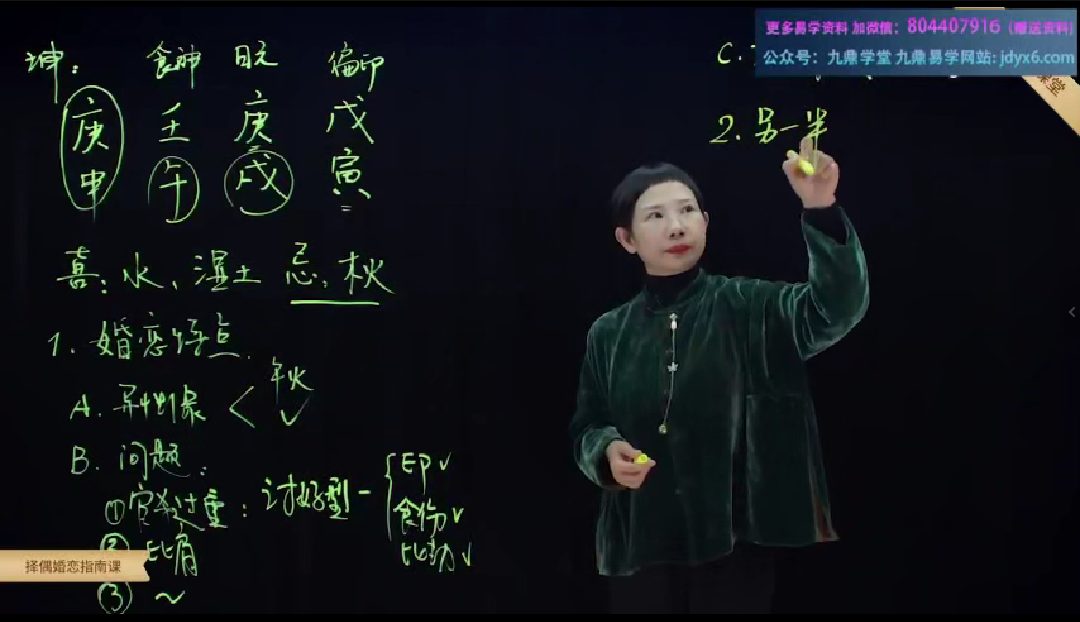 坤: 食神 日元 偏印
庚 壬 庚 戊
申 午 戌 寅
喜: 水、湿土 忌: 木火
1. 婚恋特点.
A. 异性对象 < 午火
B. 问题:
①官杀过重: 讨好型 — { 印 ✓
食伤 ✓
比劫 ✓
② 比肩
③ ~
C.
2. 另一半
更多易学资料 加微信: 804407916 (赠送资料)
公众号: 九鼎学堂 九鼎易学网站: jdyx6.com
择偶婚恋指南课